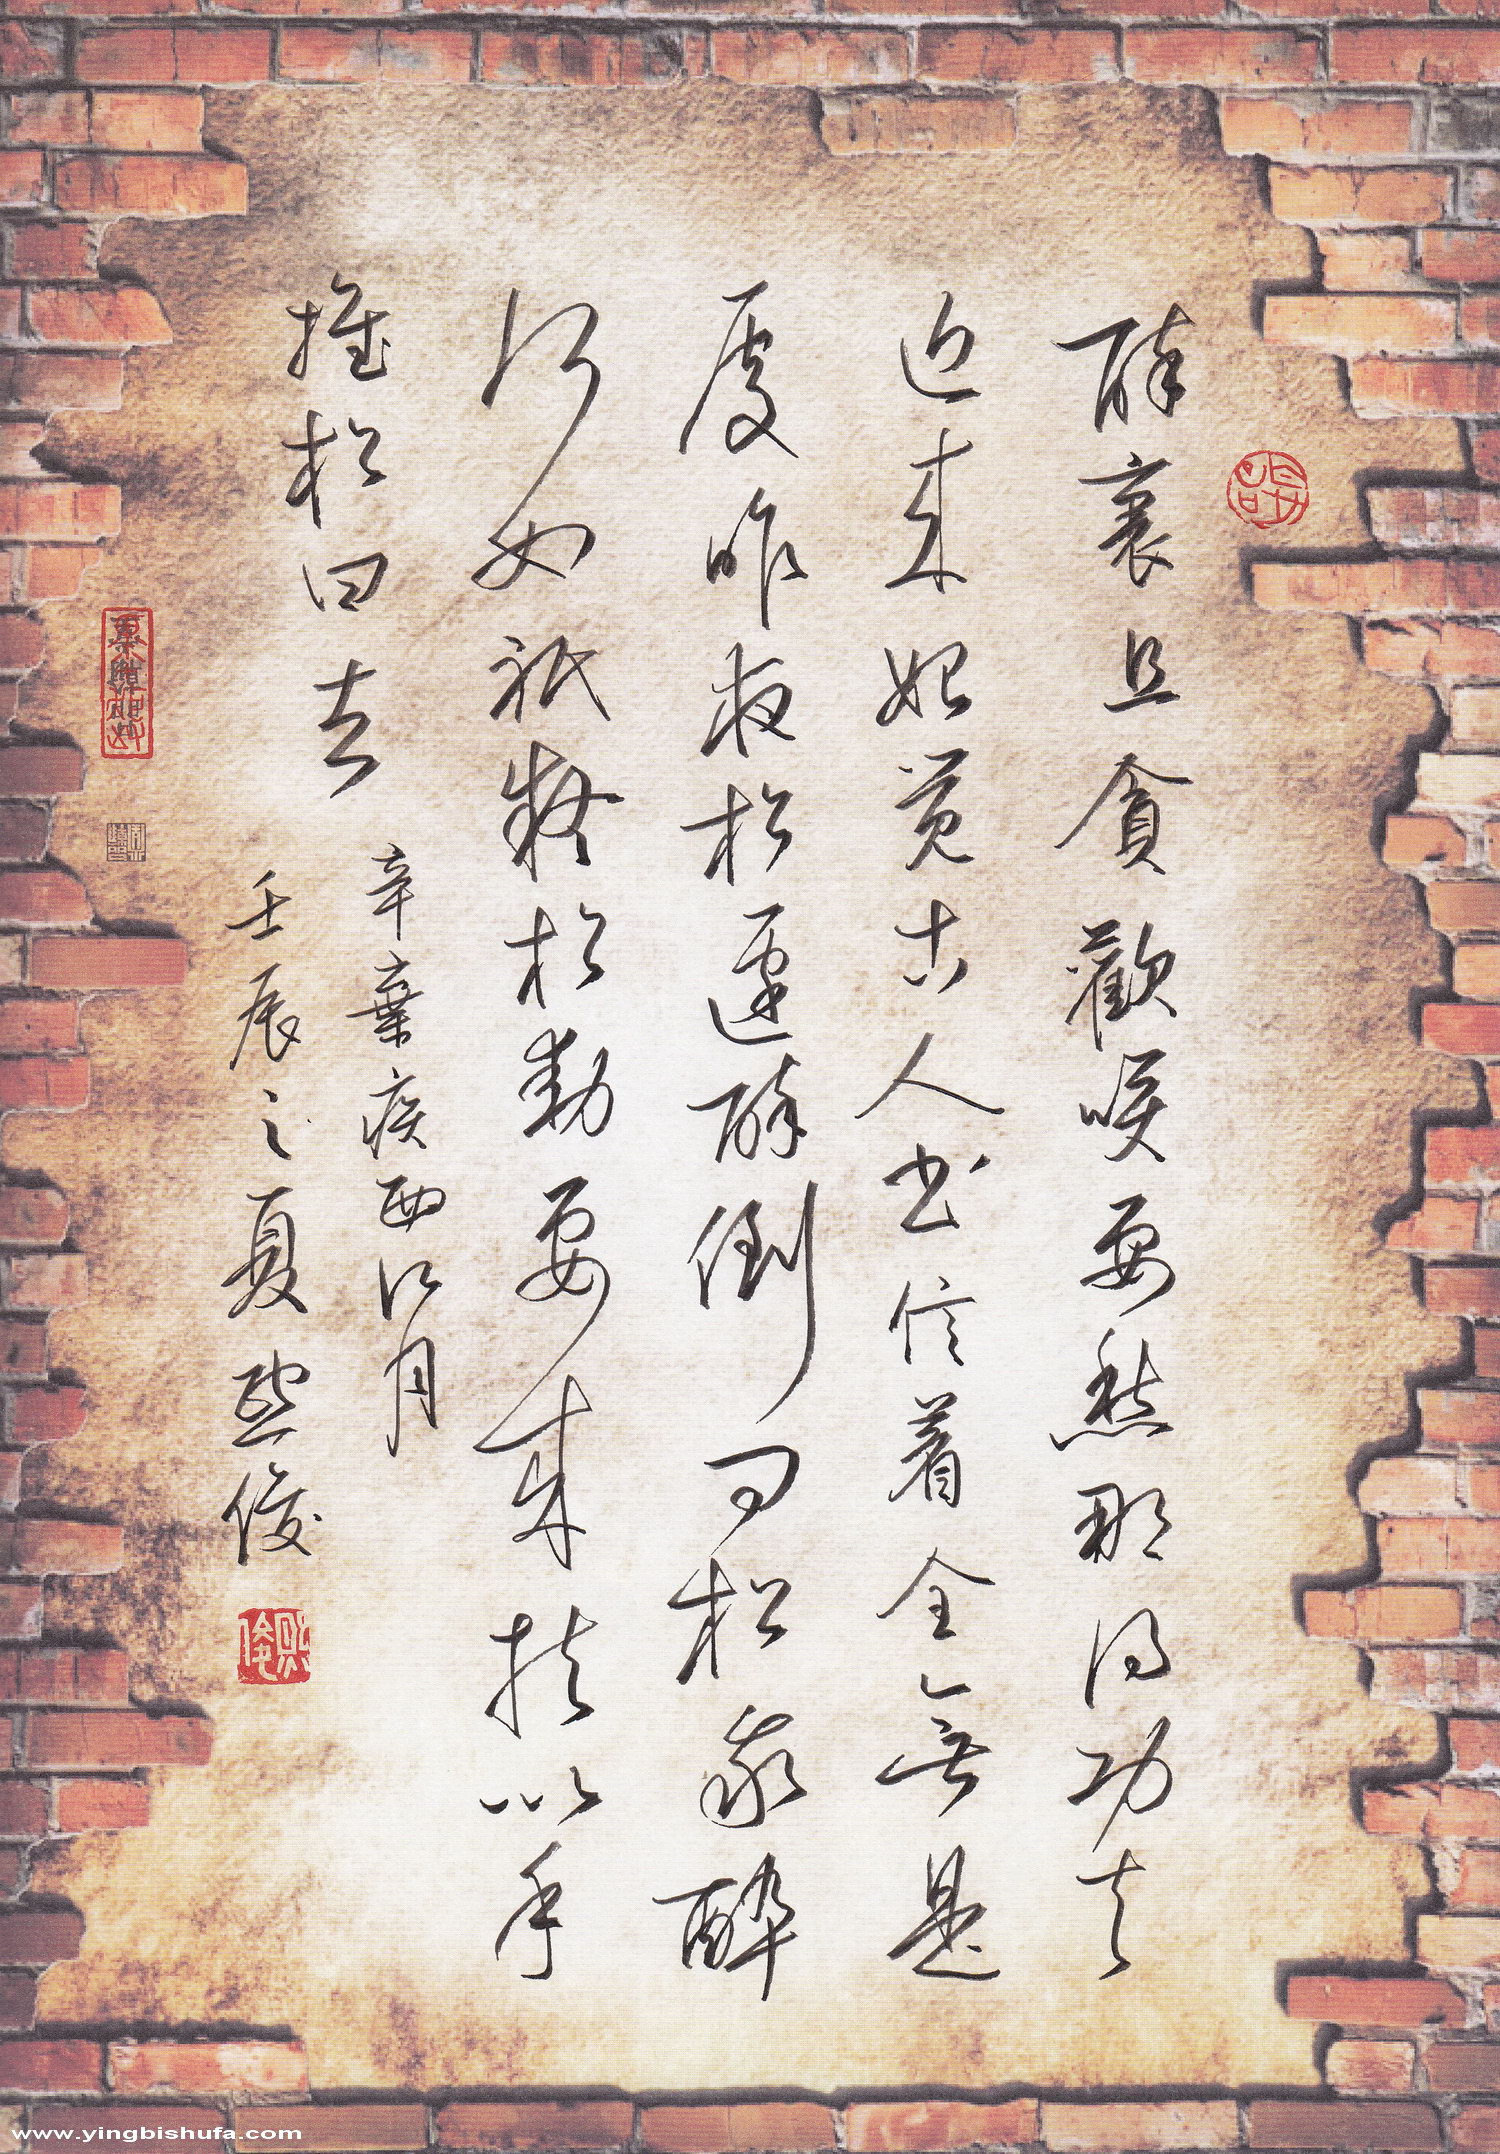 醉裏且貪歡咲要愁那得功夫
近来始覺古人書信着全無是
處昨夜松邊醉倒问松我醉
何如祇疑松動要来扶以手
推松曰去
辛棄疾西江月
壬辰之夏熙俊
熙俊
www.yingbishufa.com